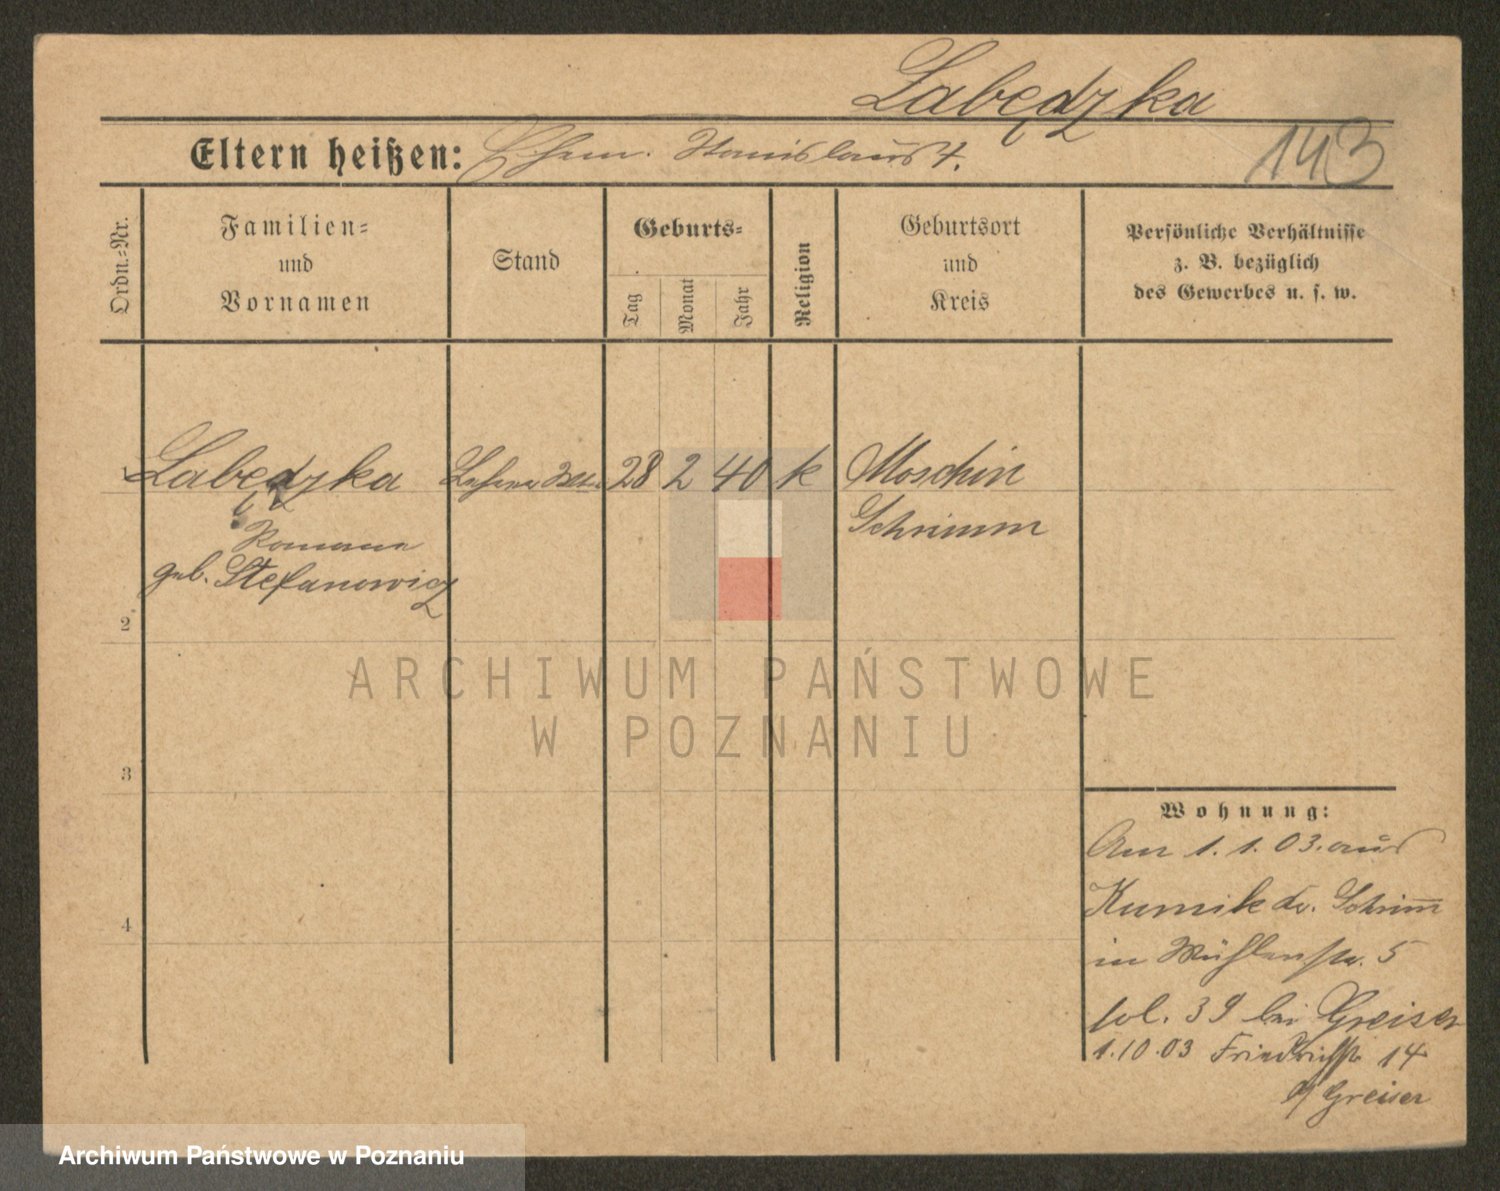 Labędzka
Eltern heißen: Ehem. Stanislaus †.
143
Ordn.-Nr.
Familien-
und
Vornamen
Stand
Geburts-
Tag
Monat
Jahr
Religion
Geburtsort
und
Kreis
Persönliche Verhältnisse
z. B. bezüglich
des Gewerbes u. s. w.
Labędzka 28 2 40 k Moschin
Schrimm
Romana
geb. Stefanowicz
2
3
4
Wohnung:
Am 1. 1. 03. aus
Kurnik Kr. Schrimm
in Mühlenstr. 5
fol. 39 bei Greiser
1.10.03 Friedrichstr 14
b/ Greiser
ARCHIWUM PAŃSTWOWE
W POZNANIU
Archiwum Państwowe w Poznaniu